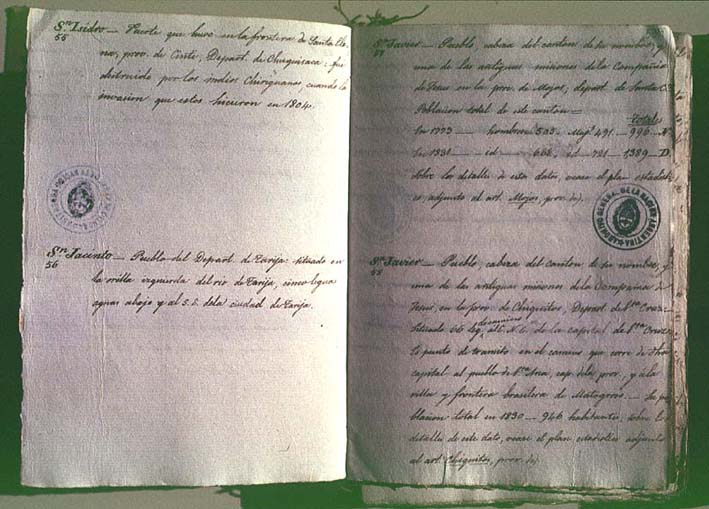 Sn. Isidro — Fuerte que hubo en la frontera de Santa Ele
55
na, prov. de Cinti, Depart. de Chuquisaca: fue
destruido por los indios Chiriguanos, cuando la
invasion que estos hicieron en 1804.
Sn. Jacinto — Pueblo del Depart. de Tarija: situado en
56
la orilla izquierda del rio de Tarija, cinco leguas
aguas abajo y al S.E. de la ciudad de Tarija.
Sn. Javier — Pueblo, cabeza del canton de su nombre, y
57
una de las antiguas misiones de la Compañia
de Jesus en la prov. de Mojos, depart. de Santa C.
Poblacion total de este canton —
totales
En 1773 — hombres 505. Mug. 491 — 996 — N.
En 1831 — id — 668, id 721 — 1389 — D.
Sobre los detalles de este dato, vease el plan estadisti
co adjunto al art. Mojos, prov. de).
ARCHIVO GENERAL DE LA NACION ARGENTINA
Sn. Javier — Pueblo, cabeza del canton de su nombre, y
58
una de las antiguas misiones de la Compañia de
Jesus, en la prov. de Chiquitos, Depart. de Sta. Cruz:
situado 66 leg. de camino al N.E. de la capital de Sta. Cruz.
Es punto de transito en el camino que corre de dha
capital al pueblo de Sta. Ana, cap. de la prov., y a la
villa y frontera brasilera de Matogroso. — Su po
blacion total en 1830 — 946 habitantes, sobre los
detalles de este dato, vease el plan estadistico adjunto
al art. Chiquitos, prov. de).